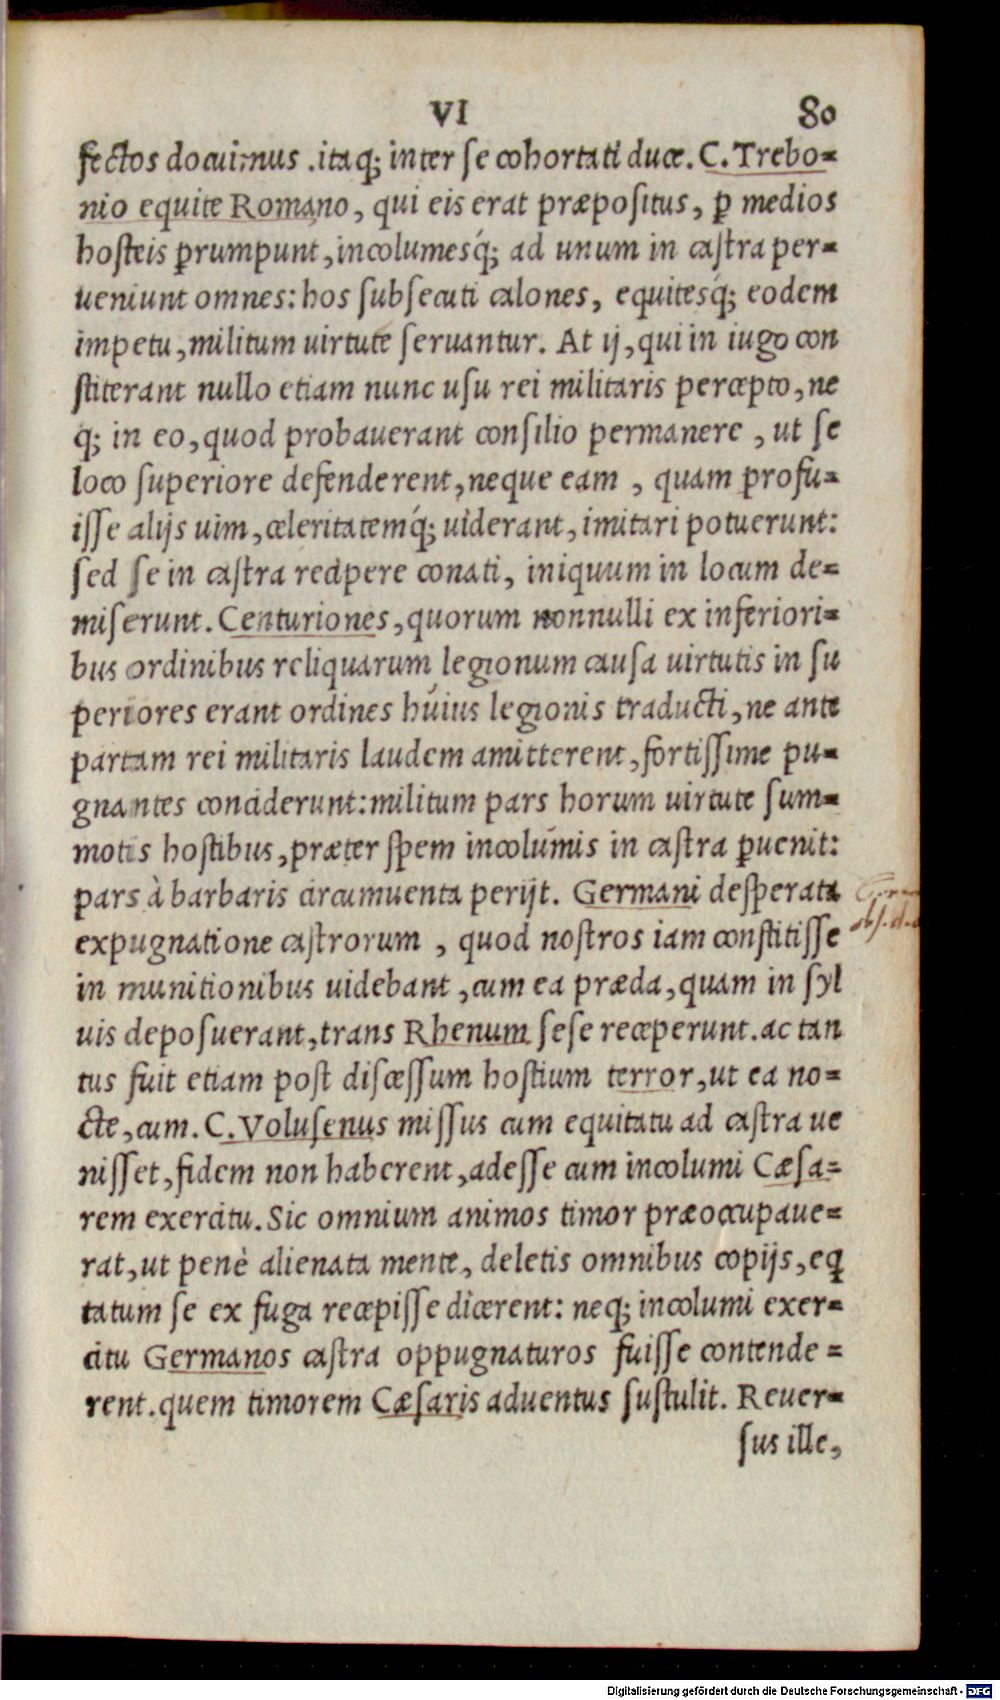 VI 80
fectos docuimus .itaq; inter se cohortati duce. C. Trebo-
nio equite Romano, qui eis erat præpositus, ꝑ medios
hosteis ꝑrumpunt, incolumesq́; ad unum in castra per-
ueniunt omnes: hos subsecuti calones, equitesq́; eodem
impetu, militum uirtute seruantur. At ij, qui in iugo con
stiterant nullo etiam nunc usu rei militaris percepto, ne
q; in eo, quod probauerant consilio permanere , ut se
loco superiore defenderent, neque eam , quam profu-
isse alijs uim, celeritatemq́; uiderant, imitari potuerunt:
sed se in castra recipere conati, iniquum in locum de-
miserunt. Centuriones, quorum nonnulli ex inferiori-
bus ordinibus reliquarum legionum causa uirtutis in su
periores erant ordines huius legionis traducti, ne ante
partam rei militaris laudem amitterent, fortissime pu-
gnantes conciderunt: militum pars horum uirtute sum-
motis hostibus, præter spem incolumis in castra ꝑuenit:
pars à barbaris circumuenta perijt. Germani desperata
expugnatione castrorum , quod nostros iam constitisse
in munitionibus uidebant, cum ea præda, quam in syl
uis deposuerant, trans Rhenum sese receperunt. ac tan
tus fuit etiam post discessum hostium terror, ut ea no-
cte, cum. C. Volusenus missus cum equitatu ad castra ue
nisset, fidem non haberent, adesse cum incolumi Cæsa-
rem exercitu. Sic omnium animos timor præoccupaue-
rat, ut penè alienata mente, deletis omnibus copijs, eq
tatum se ex fuga recepisse dicerent: neq; incolumi exer-
citu Germanos castra oppugnaturos fuisse contende-
rent. quem timorem Cæsaris aduentus sustulit. Reuer-
sus ille,
Digitalisierung gefördert durch die Deutsche Forschungsgemeinschaft - DFG